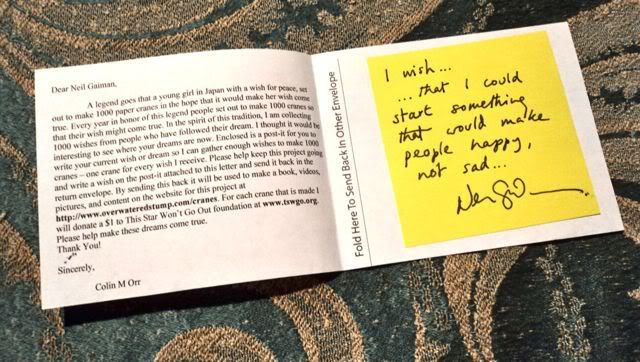 Dear Neil Gaiman,
A legend goes that a young girl in Japan with a wish for peace, set
out to make 1000 paper cranes in the hope that it would make her wish come
true. Every year in honor of this legend people set out to make 1000 cranes so
that their wish might come true. In the spirit of this tradition, I am collecting
1000 wishes from people who have followed their dream. I thought it would be
interesting to see where your dreams are now. Enclosed is a post-it for you to
write your current wish or dream so I can gather enough wishes to make 1000
cranes – one crane for every wish I receive. Please help keep this project going
and write a wish on the post-it attached to this letter and send it back in the
return envelope. By sending this back it will be used to make a book, videos,
pictures, and content on the website for this project at
http://www.overwateredstump.com/cranes. For each crane that is made I
will donate a $1 to This Star Won't Go Out foundation at www.tswgo.org.
Please help make these dreams come true.
Thank You!
Sincerely,
Colin M Orr
Fold Here To Send Back In Other Envelope
I wish...
...that I could
start something
that would make
people happy,
not sad...